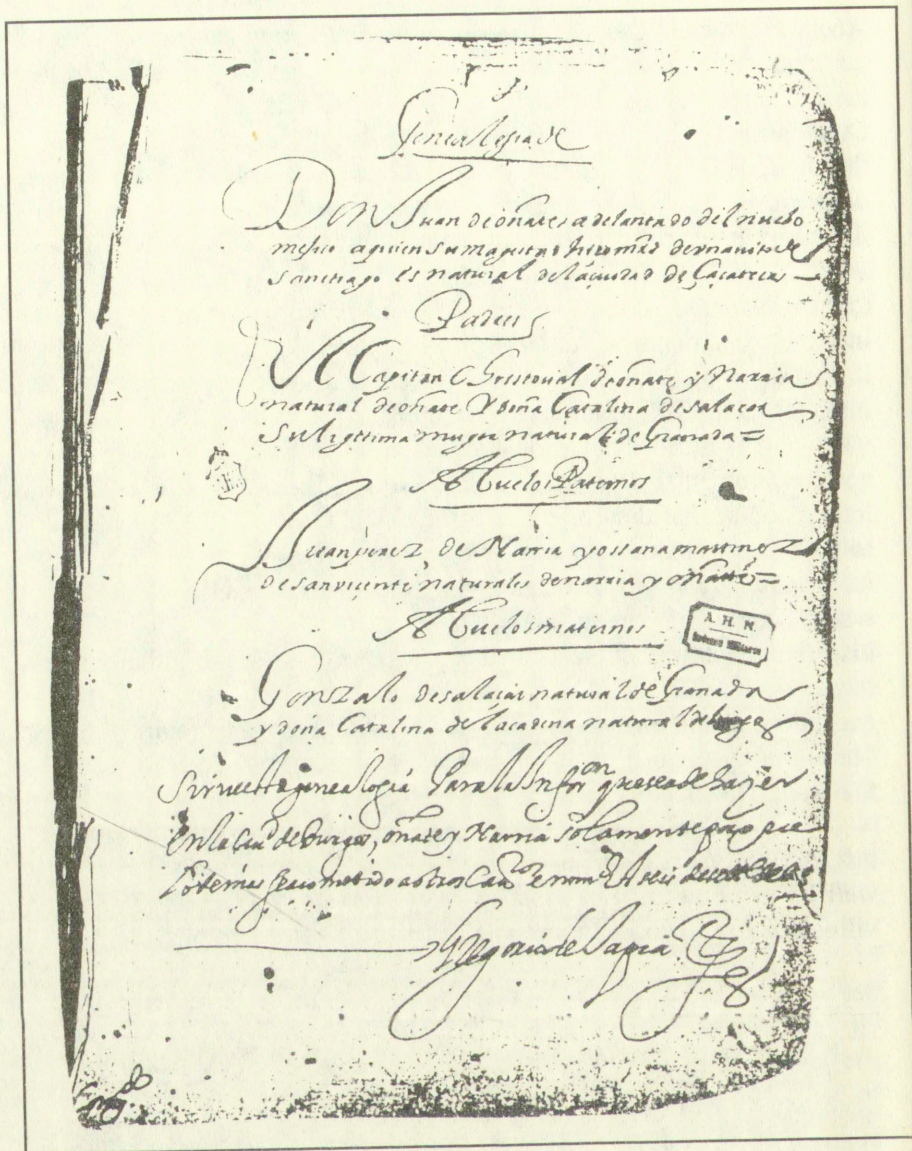 Genealogia de
Don Juan de oñate es adelantado del nuebo
mexico a quien su magestad hizo md del havito de
Sanctiago es natural de la ciudad de Çacatecas
Padres
El Capitan Christoval de oñate y Narria
natural de oñate Y doña Catalina de salaçar
su ligitima muger natural de Granada =
Abuelos Paternos
Juan perez de Narria y ossana martinez
de sanvicente naturales de narria y oñatte =
Abuelos maternos
A. H. N.
Ordenes Militares
Gonzalo de salaçar natural de Granada
y doña Catalina de la cadena natural de
Sirve esta genealogia Para la Infon que se a de hazer
en la ciud de burgos, oñate y Narria solamente porque
lo demas se a cometido a otros Cavos en md A seis de
Gregorio de Tapia